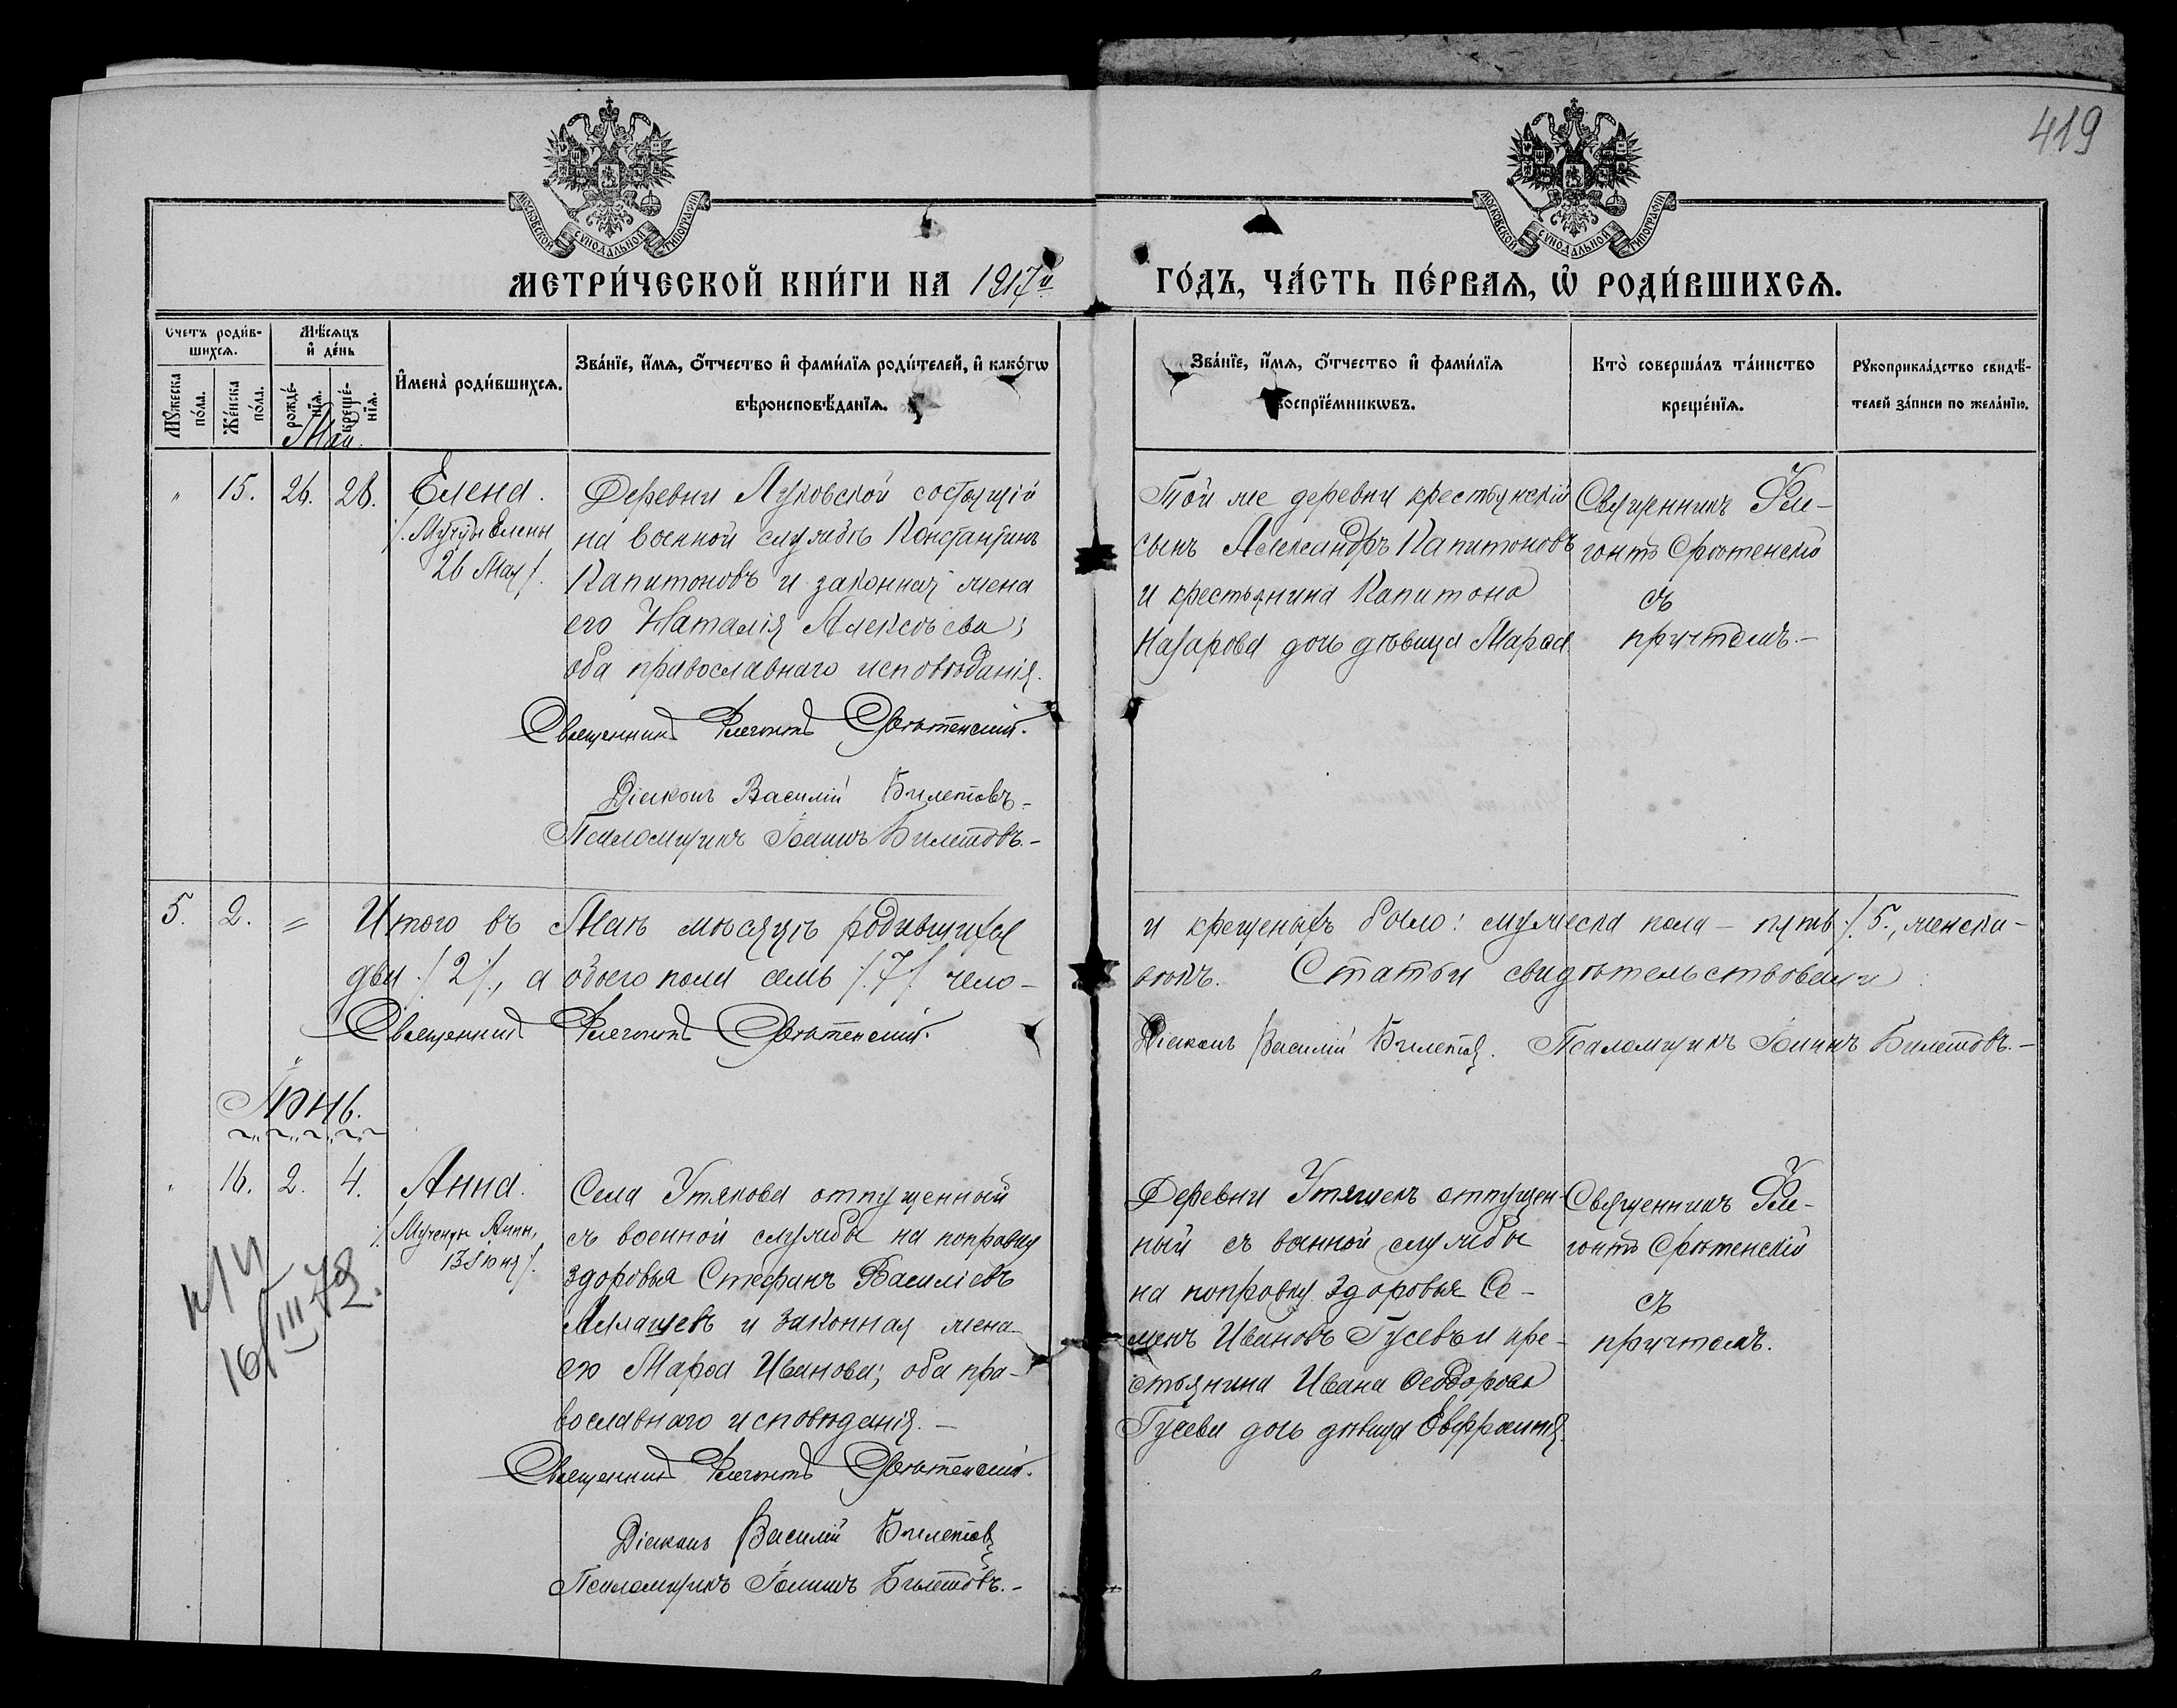 419
МОСКОВСКОЙ СУНОДАЛЬНОЙ ТИПОГРАФІИ
МОСКОВСКОЙ СУНОДАЛЬНОЙ ТИПОГРАФІИ
МЕТРИ́ЧЕСКОЙ КНИ́ГИ НА 1917й
ГО́ДЪ, ЧА́СТЬ ПЕ́РВАѦ, Ѿ РОДИ́ВШИХСѦ.
Счетъ роди́в-
шихсѧ.
Мꙋжеска
по́ла.
Же́нска
по́ла.
Мѣ́сѧцъ
и҆ де́нь
рожде́-
нїѧ.
креще́-
нїѧ.
И҆мена̀ роди́вшихсѧ.
Зва́нїе, и҆́мѧ, ѻ҆́тчество и҆ фами́лїѧ роди́телей, и҆ како́гѡ
вѣроисповѣ́данїѧ.
Зва́нїе, и҆́мѧ, ѻ҆́тчество и҆ фами́лїѧ
воспрїе́мникѡвъ.
Кто̀ соверша́лъ та́инство
креще́нїѧ.
Рꙋкоприкла́дство свидѣ́-
телей за́писи по жела́нїю.
Май.
" 15. 26. 28. Елена.
/. Муч҃цы Елены
26 Мая /.
Деревни Луковской состоящій
на военной службѣ Константинъ
Капитоновъ и законная жена
его Наталія Алексѣева;
оба православнаго исповѣданія.
Священникъ Флегонтъ Срѣтенскій.
Діаконъ Василій Билетовъ.
Псаломщикъ Іоаннъ Билетовъ.-
Той же деревни крестьянскій
сынъ Александръ Капитоновъ
и крестьянина Капитона
Назарова дочь дѣвица Марѳа
Священникъ Фле-
гонтъ Срѣтенскій
съ
причтомъ.-
5. 2. = Итого въ Маѣ мѣсяцѣ родившихся
и крещеныхъ было: мужеска пола - пять /. 5., женска-
два /. 2 /., а обоего пола семь /. 7 /. чело-
вѣкъ. Статьи свидѣтельствовали:
Священникъ Флегонтъ Срѣтенскій.
Діаконъ Василій Билетовъ. Псаломщикъ Іоаннъ Билетовъ.-
Іюнь.
" 16. 2. 4. Анна.
/. Мученцы Анны,
13 Іюня /.
16/III 72.
Села Утякова отпущенный
съ военной службы на поправку
здоровья Стефанъ Василіевъ
и законная жена
его Марѳа Иванова; оба пра-
вославнаго исповѣданія.-
Священникъ Флегонтъ Срѣтенскій.
Діаконъ Василій Билетовъ
Псаломщикъ Іоаннъ Билетовъ.-
Деревни Утяшекъ отпущен-
ный съ военной службы
на поправку здоровья Се-
менъ Ивановъ Гусевъ и кре-
стьянина Ивана Ѳеодорова
Гусева дочь дѣвица
Священникъ Фле-
гонтъ Срѣтенскій
съ
причтомъ.